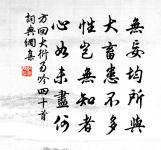 無妄均所與
大畜患不多
性豈無知者
心如未盡何
方回大衍易吟四十首
詞典網集